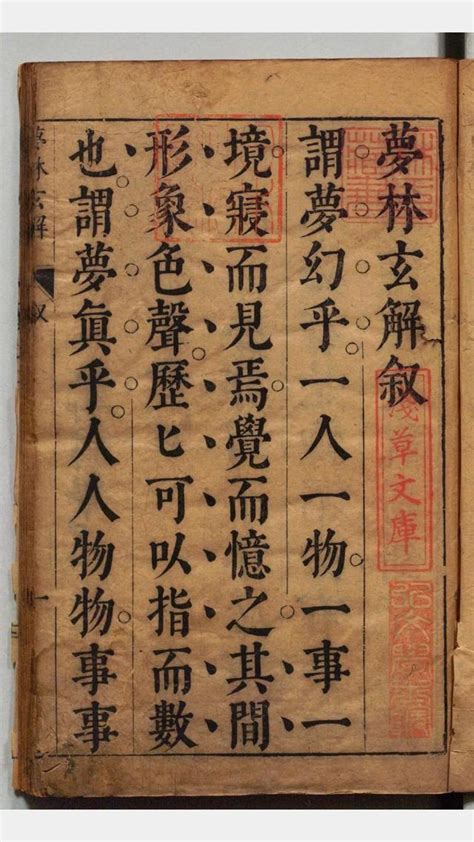 夢林玄解叙
淺草文庫
謂夢幻乎一人一物一事一
境寢而見焉覺而憶之其間
形象色聲歷匕可以指而數
也謂夢眞乎人人物物事事
夢林玄解
叙
一